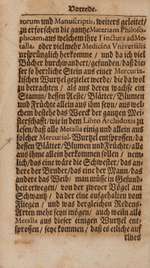 Vorrede.
torum und Manuscriptis, weiters geleitet/
zu erforschen die gantze Materiam Philoso-
phicam, aus welchem ihre Tinctura ad Me-
talla oder vielmehr Medicina Universalis
ursprünglich herkomme / und da ich viel
Bücher durchwandert/ gefunden/ daß die-
ser so herrliche Stein aus einer Mercuria-
lischen Wurtzel gezielet werde/ die da wol
zu betrachten / als aus deren wachse ein
Stamm/ dessen Aeste/ Blätter/ Blumen
und Früchte allein aus ihm seyn/ aus wel-
chem bestehe das Werck der gantzen Me-
tall / wie in dem Libro zu
lesen/ daß alle Metalla einig und allein aus
solcher Mercurial-Wurtzel entsprossen/ da
dessen Blätter/ Blumen und Früchte/ alle
aus ihme allein herkommen sollen /
lich/ das eine wäre die Schwester/ das an-
dere der Bruder/ das eine der Mann/ das
andere das Weib/ man müsse in Gesund-
heit erwegen/ von der Vogel am
Schwantz / der andere
Fliegen / und was dergleichen Redens-
Arten mehr seyn mögen/ auch weilen alle
Metalla aus dieser einigen Wurtzel ent-
sprossen/ seye kommen/ daß es etliche auf